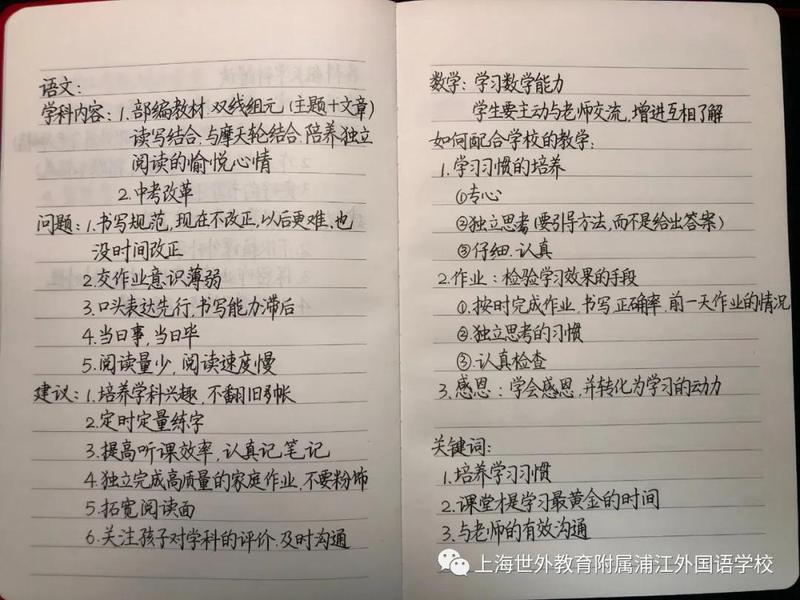 语文:
学科内容:1.部编教材.双线组元(主题+文章)
读写结合,与摩天轮结合.陪养独立
阅读的愉悦心情
2.中考改革
问题:1.书写规范,现在不改正,以后更难.也
没时间改正
2.交作业意识薄弱
3.口头表达先行,书写能力滞后
4.当日事,当日毕
5.阅读量少,阅读速度慢
建议:1.培养学科兴趣,不翻旧帐
2.定时定量练字
3.提高听课效率,认真记笔记
4.独立完成高质量的家庭作业,不要粉饰
5.拓宽阅读面
6.关注孩子对学科的评价.及时沟通
数学:学习数学能力
学生要主动与老师交流,增进互相了解
如何配合学校的教学:
1.学习习惯的培养
①专心
②独立思考(要引导方法,而不是给出答案)
③仔细.认真
2.作业:检验学习效果的手段
①.按时完成作业.书写.正确率.前一天作业的情况
②.独立思考的习惯
③.认真检查
3.感恩:学会感恩,并转化为学习的动力
关键词:
1.培养学习习惯
2.课堂才是学习最黄金的时间
3.与老师的有效沟通
上海世外教育附属浦江外国语学校